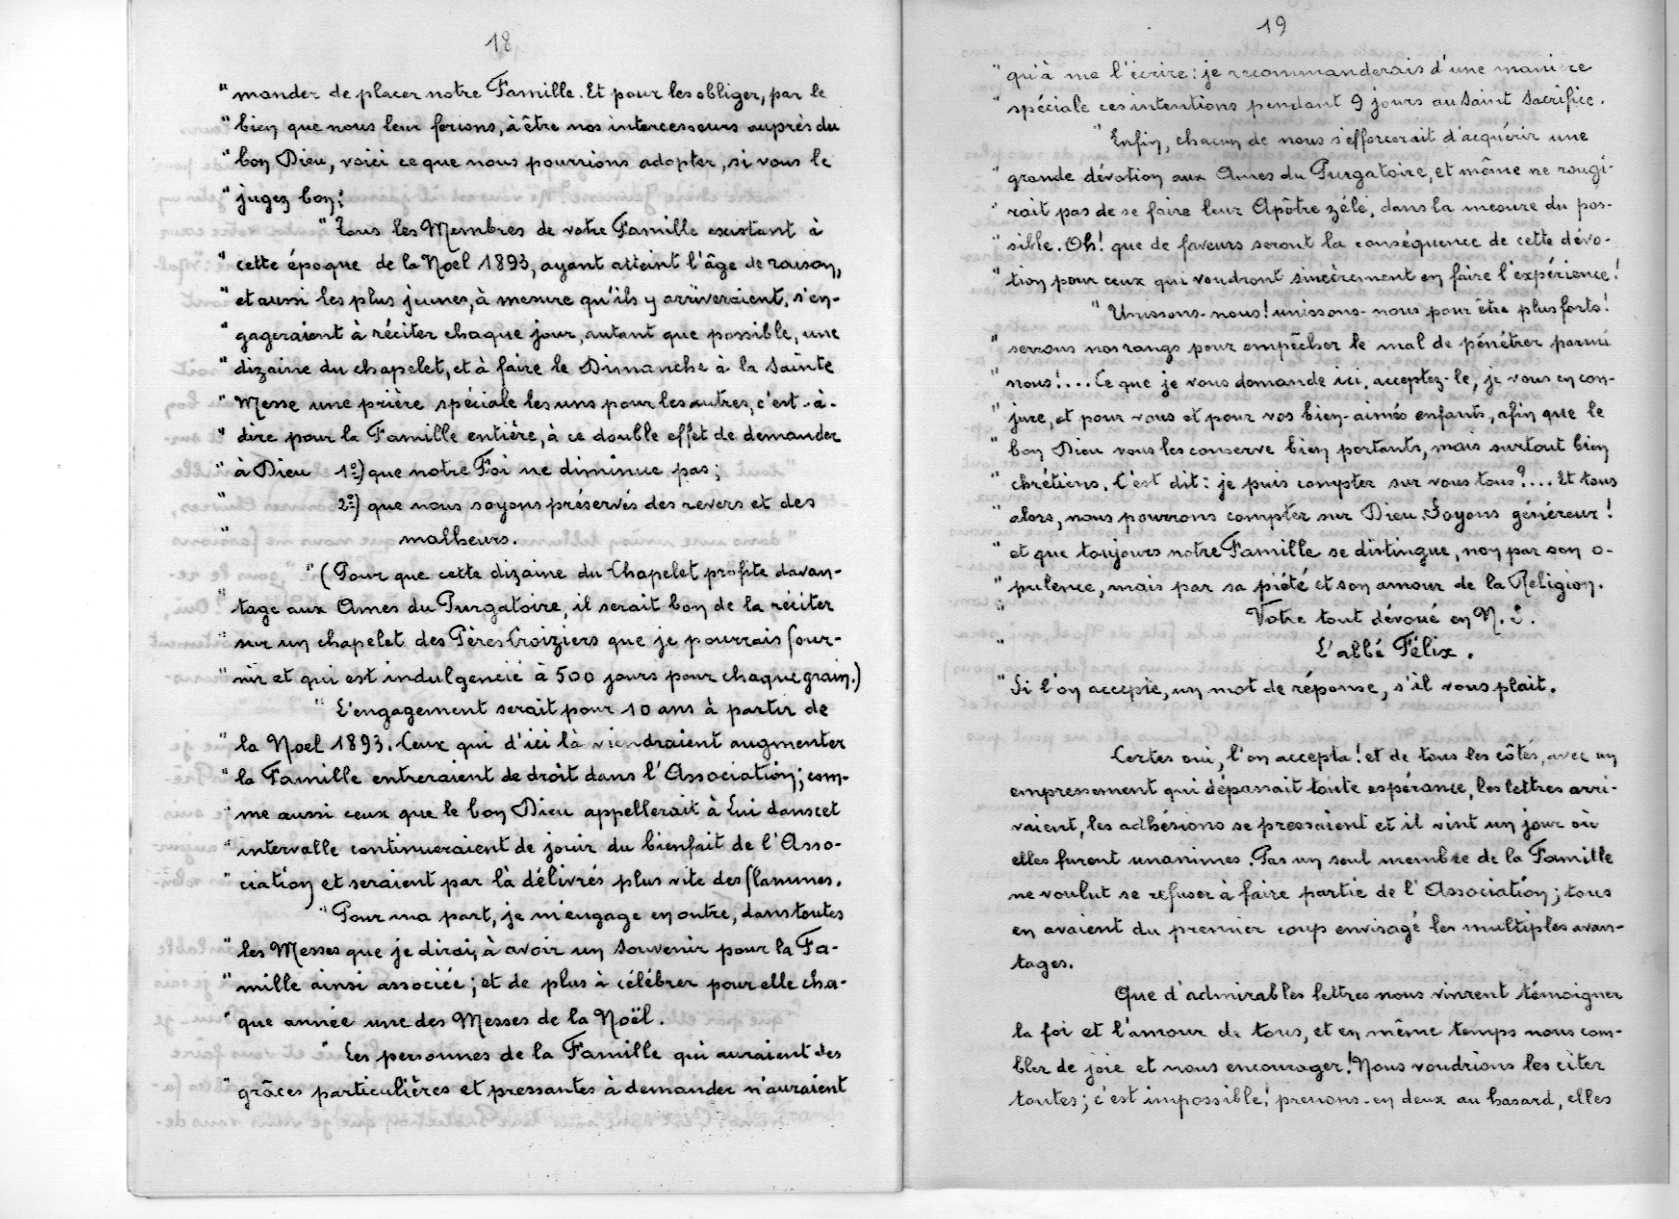 18
" mander de placer notre Famille. Et pour les obliger, par le
" bien que nous leur ferions, à être nos intercesseurs auprès du
" bon Dieu, voici ce que nous pourrions adopter, si vous le
" jugez bon:
" Tous les Membres de votre Famille existant à
" cette époque de la Noël 1893, ayant atteint l'âge de raison,
" et aussi les plus jeunes, à mesure qu'ils y arriveraient, s'en-
" gageraient à réciter chaque jour, autant que possible, une
" dizaine du chapelet, et à faire le Dimanche à la Sainte
" Messe une prière spéciale les uns pour les autres, c'est-à-
" dire pour la Famille entière, à ce double effet de demander
" à Dieu 1º) que notre Foi ne diminue pas;
" 2º) que nous soyons préservés des revers et des
" malheurs.
" (Pour que cette dizaine du Chapelet profite davan-
" tage aux Ames du Purgatoire, il serait bon de la réciter
" sur un chapelet des Pères Croiziers que je pourrais four-
" nir et qui est indulgencié à 500 jours pour chaque grain.)
" L'engagement serait pour 10 ans à partir de
" la Noel 1893. Ceux qui d'ici là viendraient augmenter
" la Famille entreraient de droit dans l'Association; com-
" me aussi ceux que le bon Dieu appellerait à Lui dans cet
" intervalle continueraient de jouir du bienfait de l'Asso-
" ciation et seraient par là délivrés plus vite des flammes.
" Pour ma part, je m'engage en outre, dans toutes
" les Messes que je dirai, à avoir un souvenir pour la Fa-
" mille ainsi associée; et de plus à célébrer pour elle cha-
" que année une des Messes de la Noël.
" Les personnes de la Famille qui auraient des
" grâces particulières et pressantes à demander n'auraient
19
" qu'à me l'écrire: je recommanderais d'une manière
" spéciale ces intentions pendant 9 jours au Saint Sacrifice.
" Enfin, chacun de nous s'efforcerait d'acquérir une
" grande dévotion aux Ames du Purgatoire, et même ne rougi-
" rait pas de se faire leur Apôtre zélé, dans la mesure du pos-
" sible. Oh! que de faveurs seront la conséquence de cette dévo-
" tion pour ceux qui voudront sincèrement en faire l'expérience!
" Unissons-nous! unissons-nous pour être plus forts!
" serrons nos rangs pour empêcher le mal de pénétrer parmi
" nous!... Ce que je vous demande ici, acceptez-le, je vous en con-
" jure, et pour vous et pour vos bien-aimés enfants, afin que le
" bon Dieu vous les conserve bien portants, mais surtout bien
" chrétiens. C'est dit: je puis compter sur vous tous?... Et tous
" alors, nous pourrons compter sur Dieu. Soyons généreux!
" et que toujours notre Famille se distingue, non par son o-
" pulence, mais par sa piété et son amour de la Religion.
" Votre tout dévoué en N. S.
" L'abbé Félix.
" Si l'on accepte, un mot de réponse, s'il vous plait.
Certes oui, l'on accepta! et de tous les côtés, avec un
empressement qui dépassait toute espérance, les lettres arri-
vaient, les adhésions se pressaient et il vint un jour où
elles furent unanimes. Pas un seul membre de la Famille
ne voulut se refuser à faire partie de l'Association; tous
en avaient du premier coup envisagé les multiples avan-
tages.
Que d'admirables lettres nous vinrent témoigner
la foi et l'amour de tous, et en même temps nous com-
bler de joie et nous encourager! Nous voudrions les citer
toutes; c'est impossible! prenons-en deux au hasard, elles